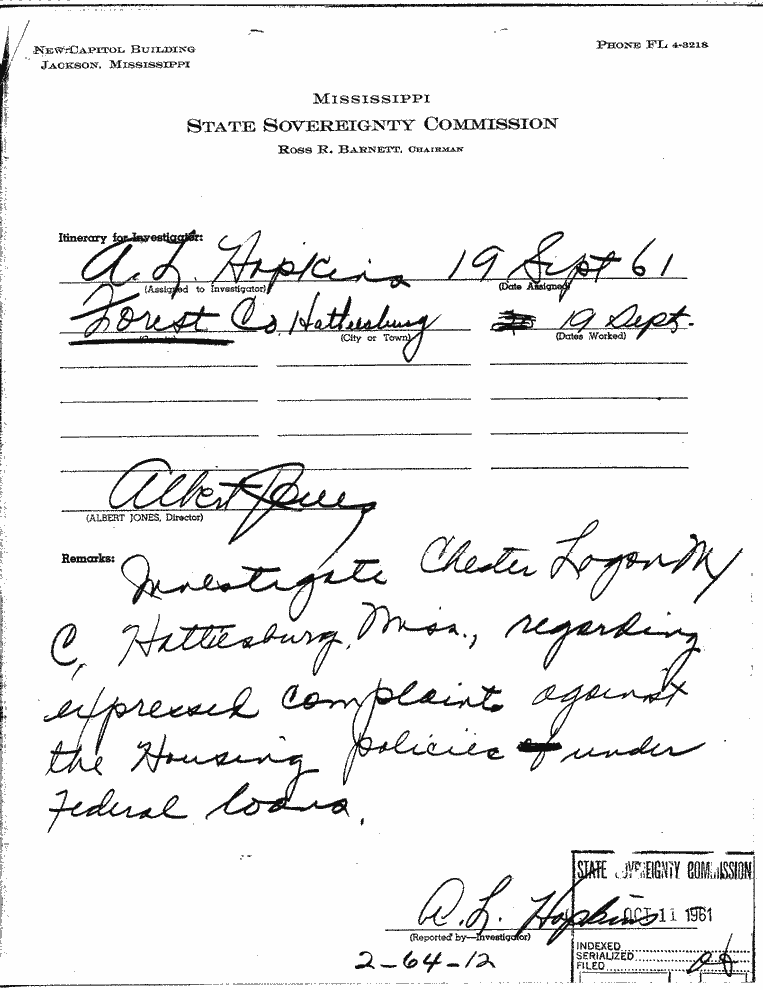 NEW CAPITOL BUILDING
JACKSON, MISSISSIPPI
PHONE FL 4-3218
MISSISSIPPI
STATE SOVEREIGNTY COMMISSION
ROSS R. BARNETT, CHAIRMAN
Itinerary for Investigator:
A. L. Hopkins 19 Sept 61
(Assigned to Investigator) (Date Assigned)
Forest Co Hattiesburg 19 Sept.
(City or Town) (Dates Worked)
Albert Jones
(ALBERT JONES, Director)
Remarks:
Investigate Chester Logan M/
C, Hattiesburg, Miss., regarding
expressed complaints against
the Housing policies under
Federal loans.
A. L. Hopkins
(Reported by—Investigator)
2-64-12
STATE SOVEREIGNTY COMMISSION
OCT 11 1961
INDEXED
SERIALIZED
FILED